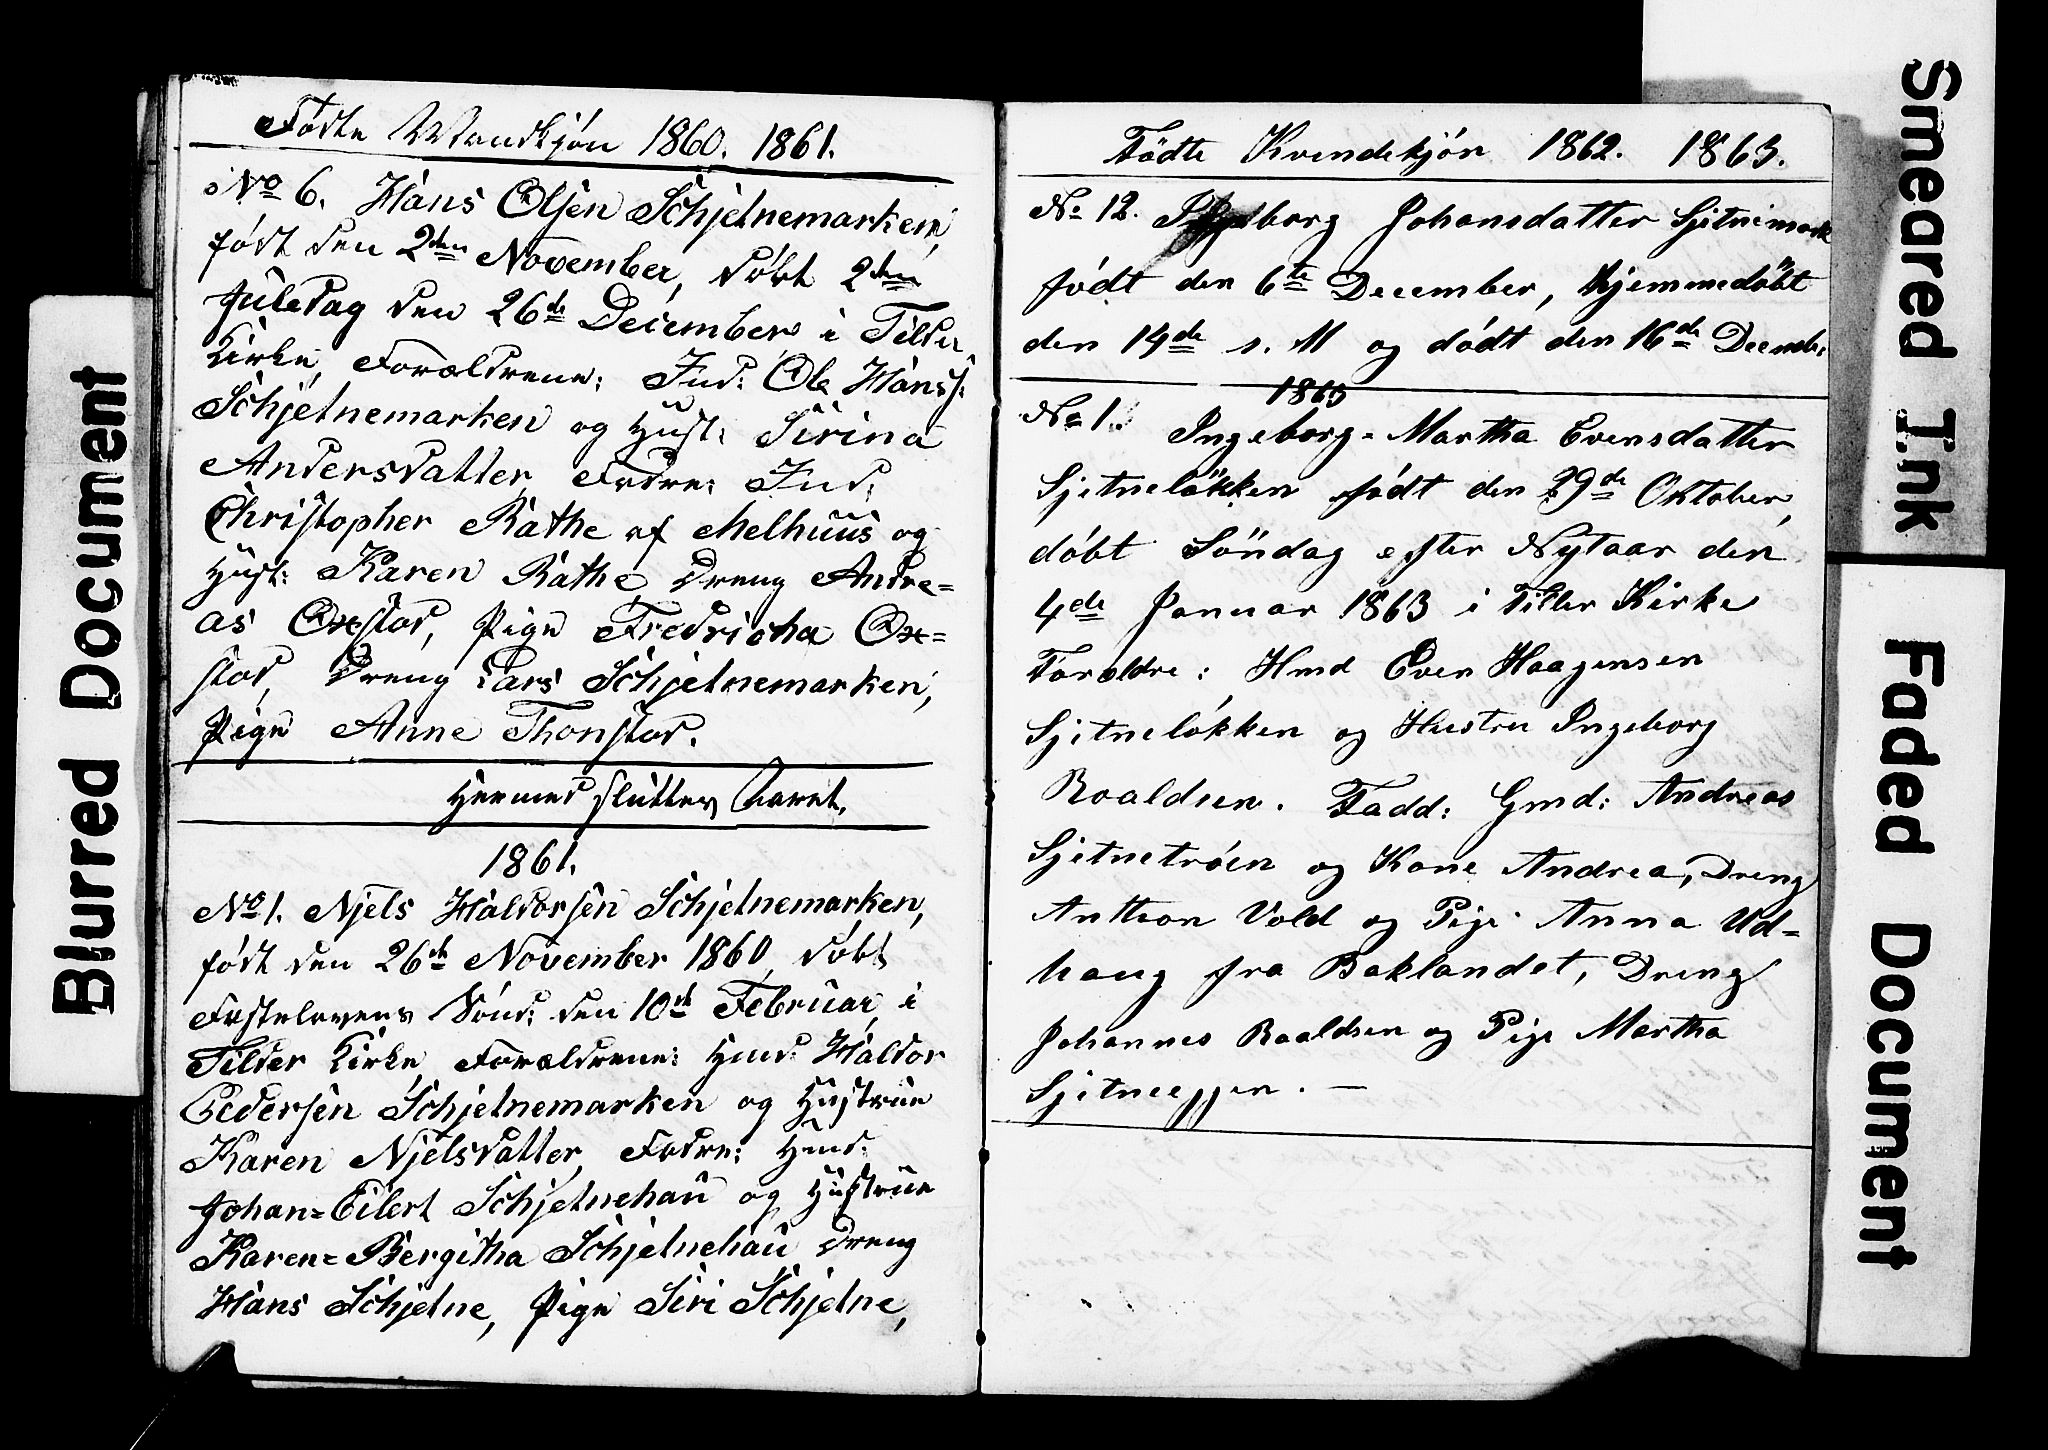 Fødte Mandkjøn 1860. 1861.
No 6. Hans Olsen Schjetnemarken,
født den 2den November, døbt 2den
Juledag den 26de December i Tilder
Kirke, Forældrene: Ind: Ole Hanss:
Schjetnemarken og Hust: Sirina
Andersdatter, Fadre: Ind:
Christopher Rathe af Melhuus og
Hust: Karen Rathe, Dreng Andre=
as Oxstad, Pige Fredricha Ox=
stad, Dreng Lars Schjetnemarken,
Pige Anne Thonstad.
Hermed slutter Aaret.
1861.
No 1. Njels Haldorsen Schjetnemarken,
født den 26de November 1860, døbt
Fastelavens Sönd: den 10de Februar, i
Tilder Kirke, Forældrene: Hmd: Haldor
Pedersen Schjetnemarken og Hustrue
Karen Njelsdatter, Fadre: Hmd:
Johan=Eilert Schjetnehau og Hustrue
Karen=Bergitha Schjetnehau Dreng
Hans Schjetne, Pige Siri Schjetne,
Födte Kvindekjön 1862. 1863.
No 12. Ingeborg Johansdatter Sjetnemark
födt den 6te December, hjemmedöbt
den 14de s. M og dödt den 16de Decembe
1863
No 1. Ingeborg-Martha Evensdatter
Sjetnelökken födt den 29de Oktober,
döbt Söndag efter Nytaar den
4de Januar 1863 i Tiller Kirke
Foreldre: Hmd Even Haagensen
Sjetnelökken og Hustru Ingeborg
Roaldsen. Fadd: Gmd: Andreas
Sjetnetröen og Kone Andrea, Dreng
Anthon Vold og Pige Anna Ud=
haug fra Baklandet, Dreng
Johannes Roaldsen og Pige Martha
Sjetneeggen. —
Blurred Document
Smeared Ink
Faded Document